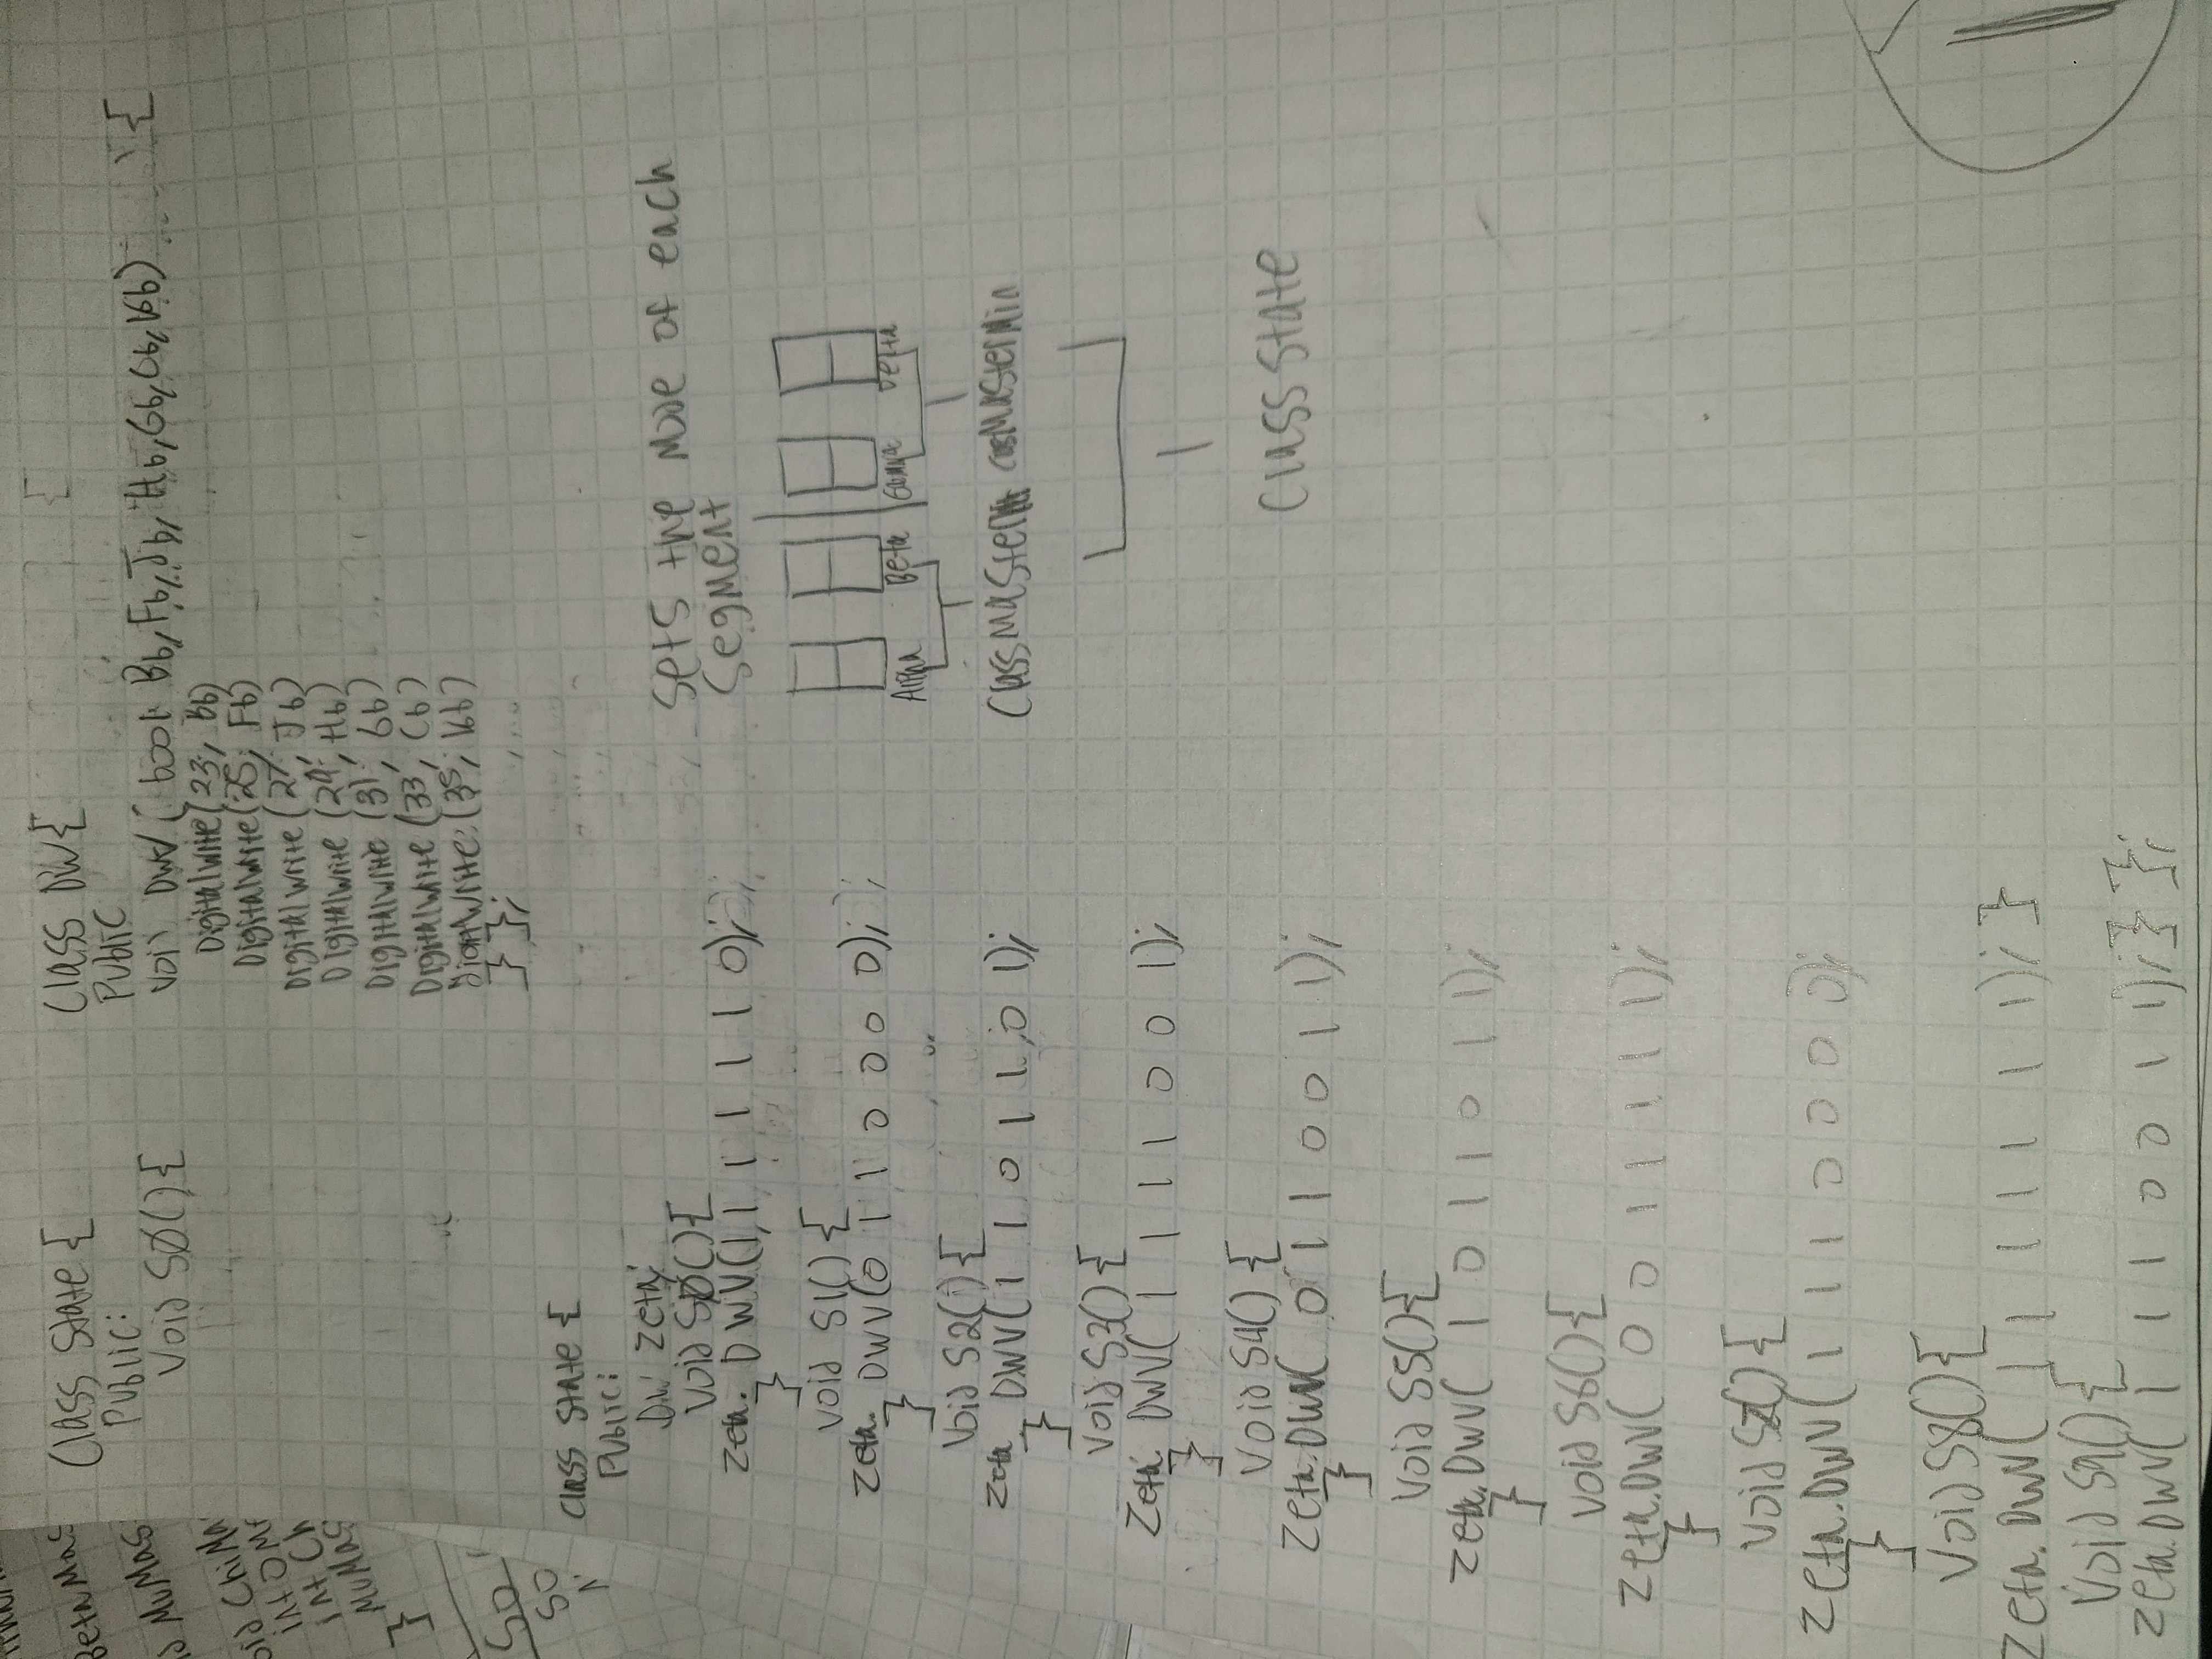 BetaMas
MuMas
oid ChiMa
int OM
int Ch
MuMas
}
SO
SO
Class State {
Public:
Void SØ() {
Class DW {
Public
Void DWV ( bool Bb, Fb, Jb, Hb, Gb, Cb, Kb) {
DigitalWrite(23, Bb)
Digitalwrite(25, Fb)
Digital write (27, Jb)
Digitalwrite (29, Hb)
Digitalwrite (31, Gb)
Digitalwrite (33, Cb)
(35, Kb)
} };
{
class state {
Public:
DW zeta;
Void SØ() {
zeta. DWV(1, 1 1 1 1 1 0);
}
void S1() {
zeta. DWV(0 1 1 0 0 0 0);
}
Void S2() {
zeta. DWV(1 1 0 1 1 0 1);
}
Void S3() {
Zeta. DWV( 1 1 1 1 0 0 1);
}
Void S4() {
Zeta. DWV( 0 1 1 0 0 1 1);
}
Void S5(){
zeta. DWV( 1 0 1 1 0 1 1);
}
Void S6(){
zeta.DWV( 0 0 1 1 1 1 1);
}
Void S7() {
zeta.DWV( 1 1 1 0 0 0 0);
}
Void S8(){
zeta. DWV( 1 1 1 1 1 1 1); }
Void S9() {
zeta.DWV( 1 1 1 0 0 1 1);} };
Sets the Mode of each
Segment
Alpha Beta Gamma Delta
ClassMaster MasterMin
Class State